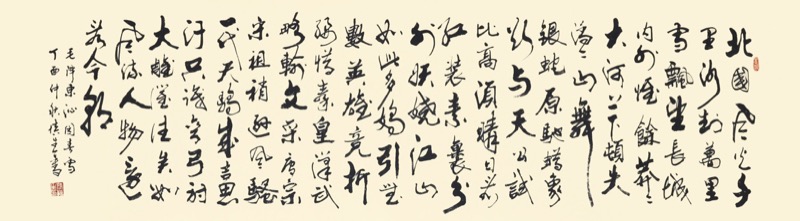 北國風光千
里冰封萬里
雪飄望長城
内外惟餘莽々
大河上下頓失
滔々山舞
銀蛇原馳蠟象
欲与天公試
比高須晴日看
紅裝素裹分
外妖嬈江山
如此多嬌引無
數英雄競折
腰惜秦皇漢武
略輸文采唐宗
宋祖稍遜風騷
一代天驕成吉思
汗只識彎弓射
大雕俱往矣數
風流人物還
看今朝
毛澤東沁園春雪
丁酉仲秋書